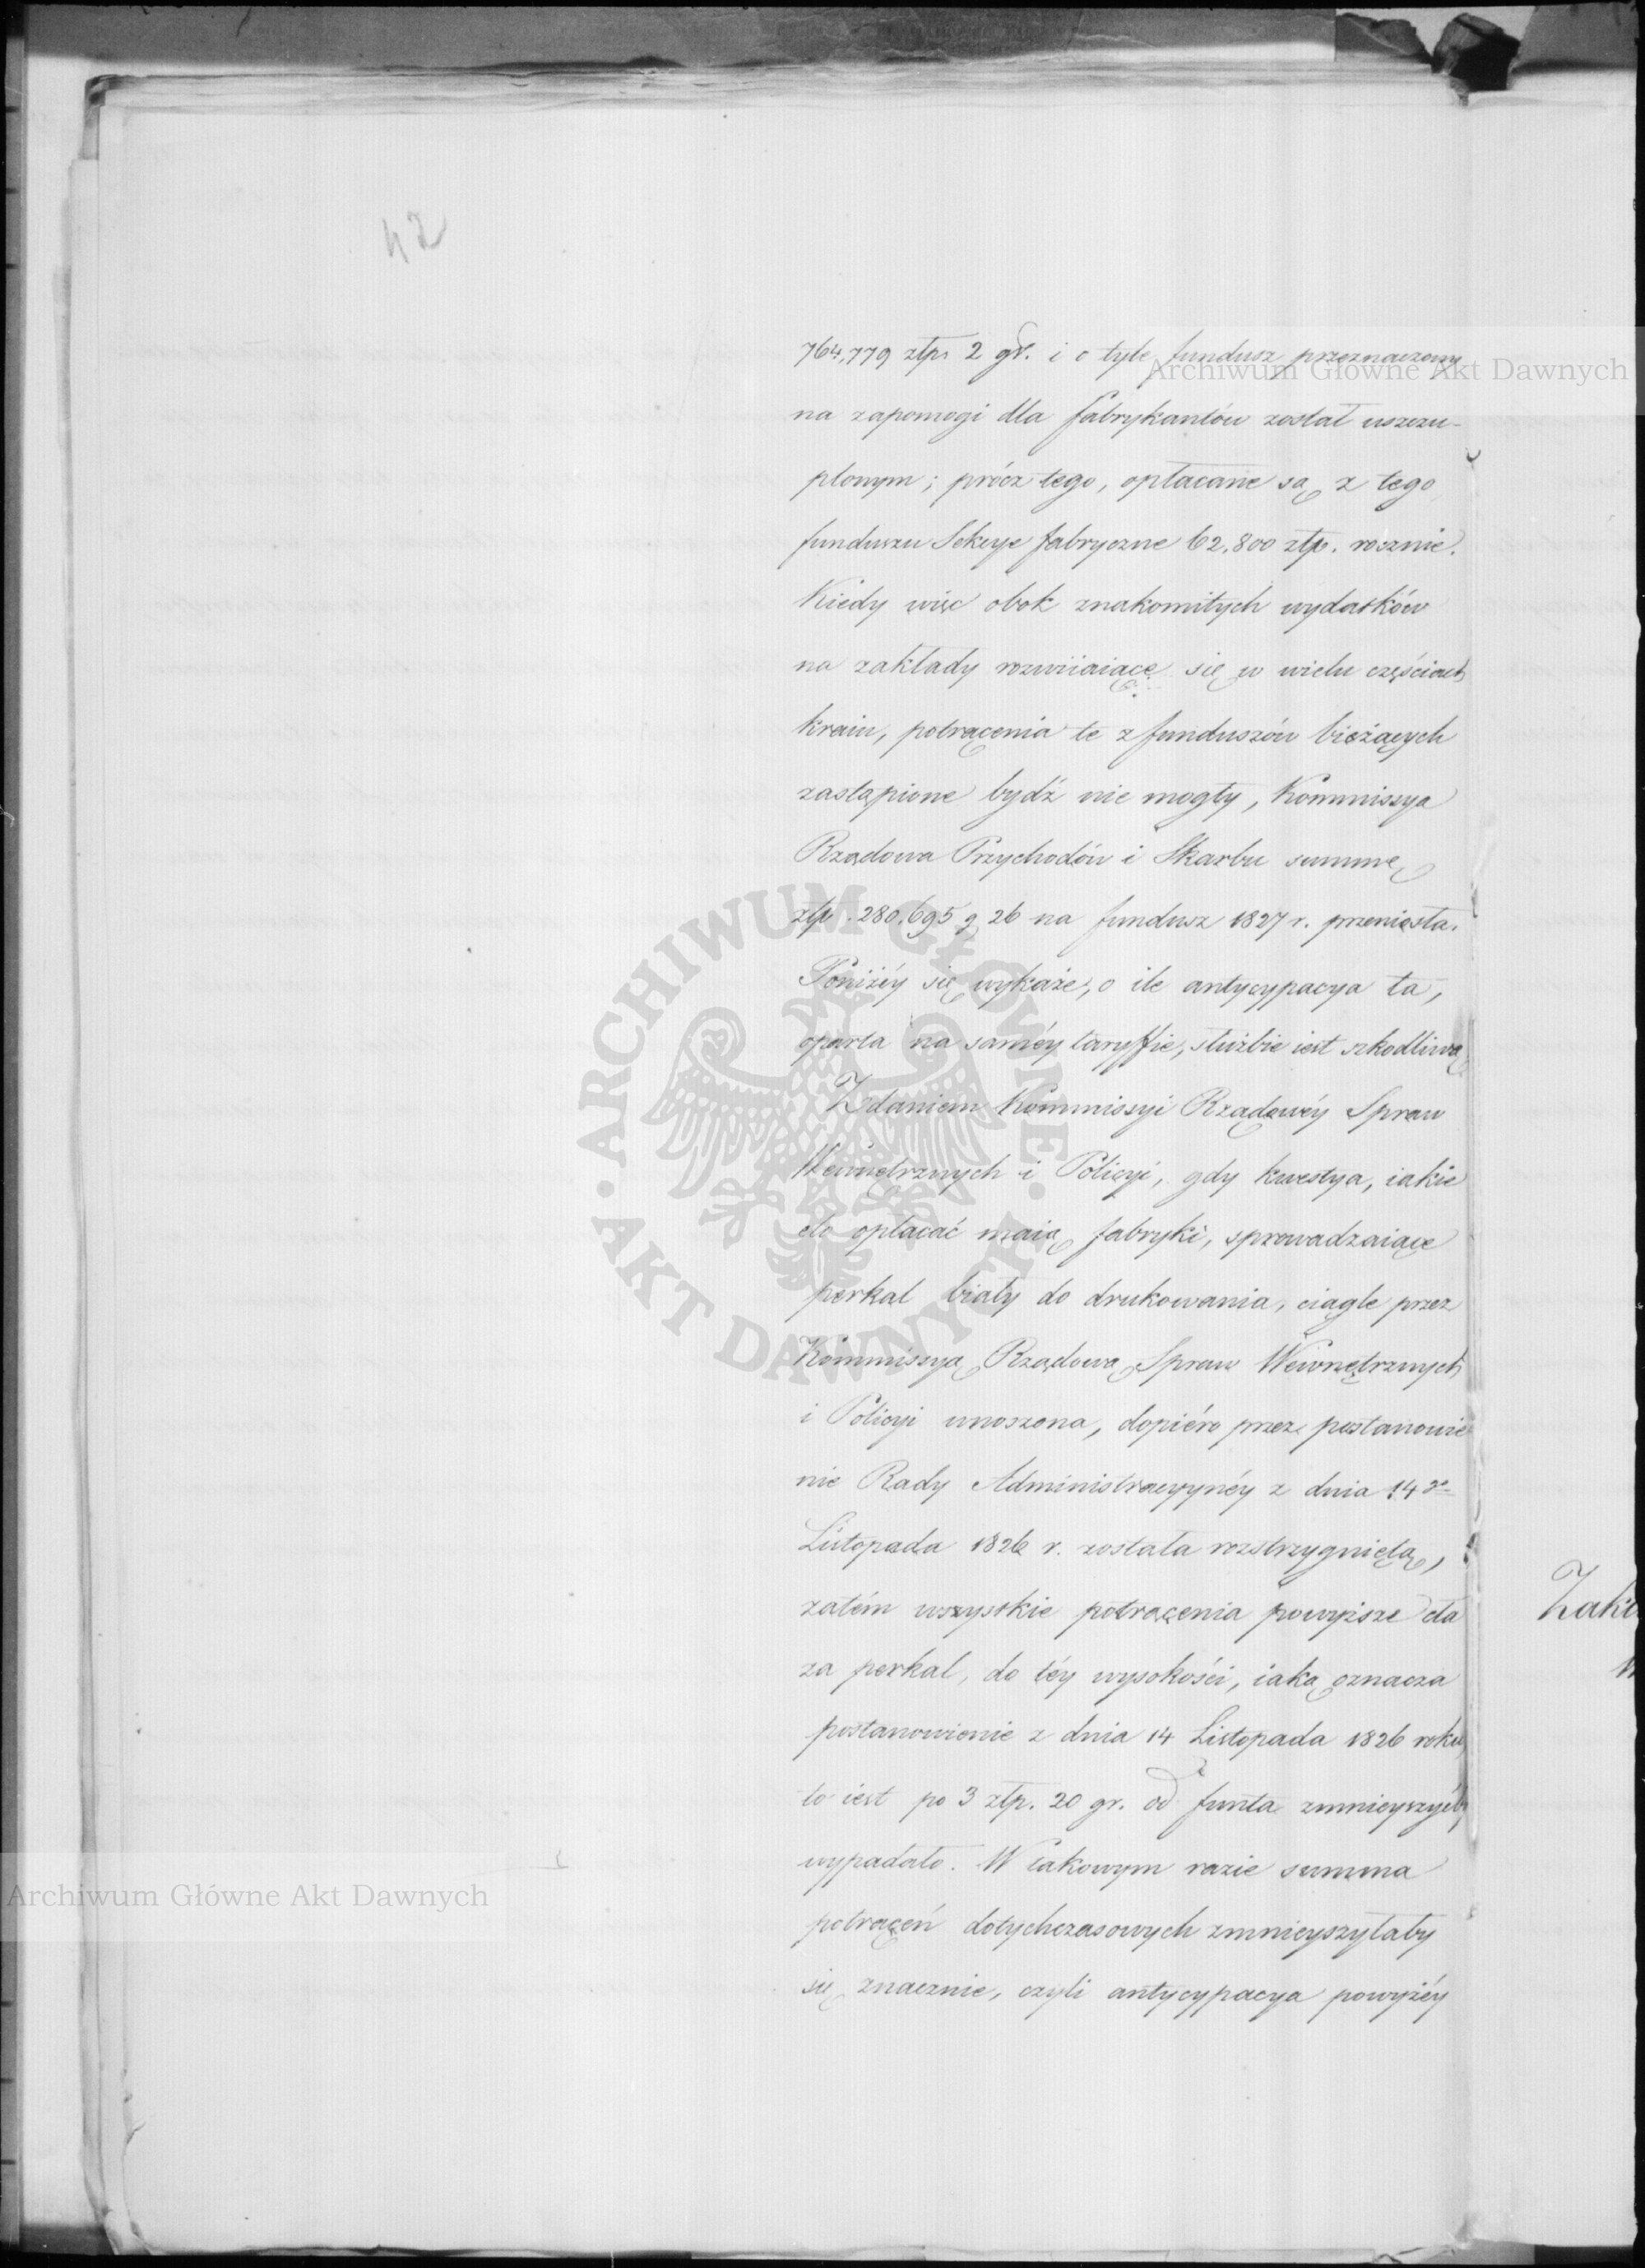 42
764,779 złp. 2 gr. i o tyle fundusz przeznaczony
Archiwum Główne Akt Dawnych
na zapomogi dla fabrykantów został uszczu-
plonym; prócz tego, opłacane są z tego
funduszu Sekcye fabryczne 62,800 złp. rocznie.
Kiedy więc obok znakomitych wydatków
na zakłady rozwiiaiące się w wielu częściach
kraiu, potrącenia te z funduszów bieżących
zastąpione bydź nie mogły, Kommissya
Rządowa Przychodów i Skarbu summę
złp. 280,695 g 26 na fundusz 1827 r. przeniosła.
Poniżéy się wykaże, o ile antycypacya ta,
oparta na saméy taryffie, służbie iest szkodliwą
Zdaniem Kommissyi Rządowéy Spraw
Wewnętrznych i Policyi, gdy kwestya, iakie
cło opłacać maią fabryki, sprowadzaiące
perkal biały do drukowania, ciągle przez
Kommissyą Rządową Spraw Wewnętrznych
i Policyi wnoszona, dopiéro przez postanowie
nie Rady Administracyynéy z dnia 14 go
Listopada 1826 r. została rozstrzygniętą,
zatém wszystkie potrącenia powyższe cła
za perkal, do téy wysokości, iaką oznacza
postanowienie z dnia 14 Listopada 1826 roku
to iest po 3 złp. 20 gr. od funta zmnieyszyćby
wypadało. W takowym razie summa
potrąceń dotychczasowych zmnieyszyłaby
się znacznie, czyli antycypacya powyżéy
Archiwum Główne Akt Dawnych
ARCHIWUM GŁÓWNE AKT DAWNYCH